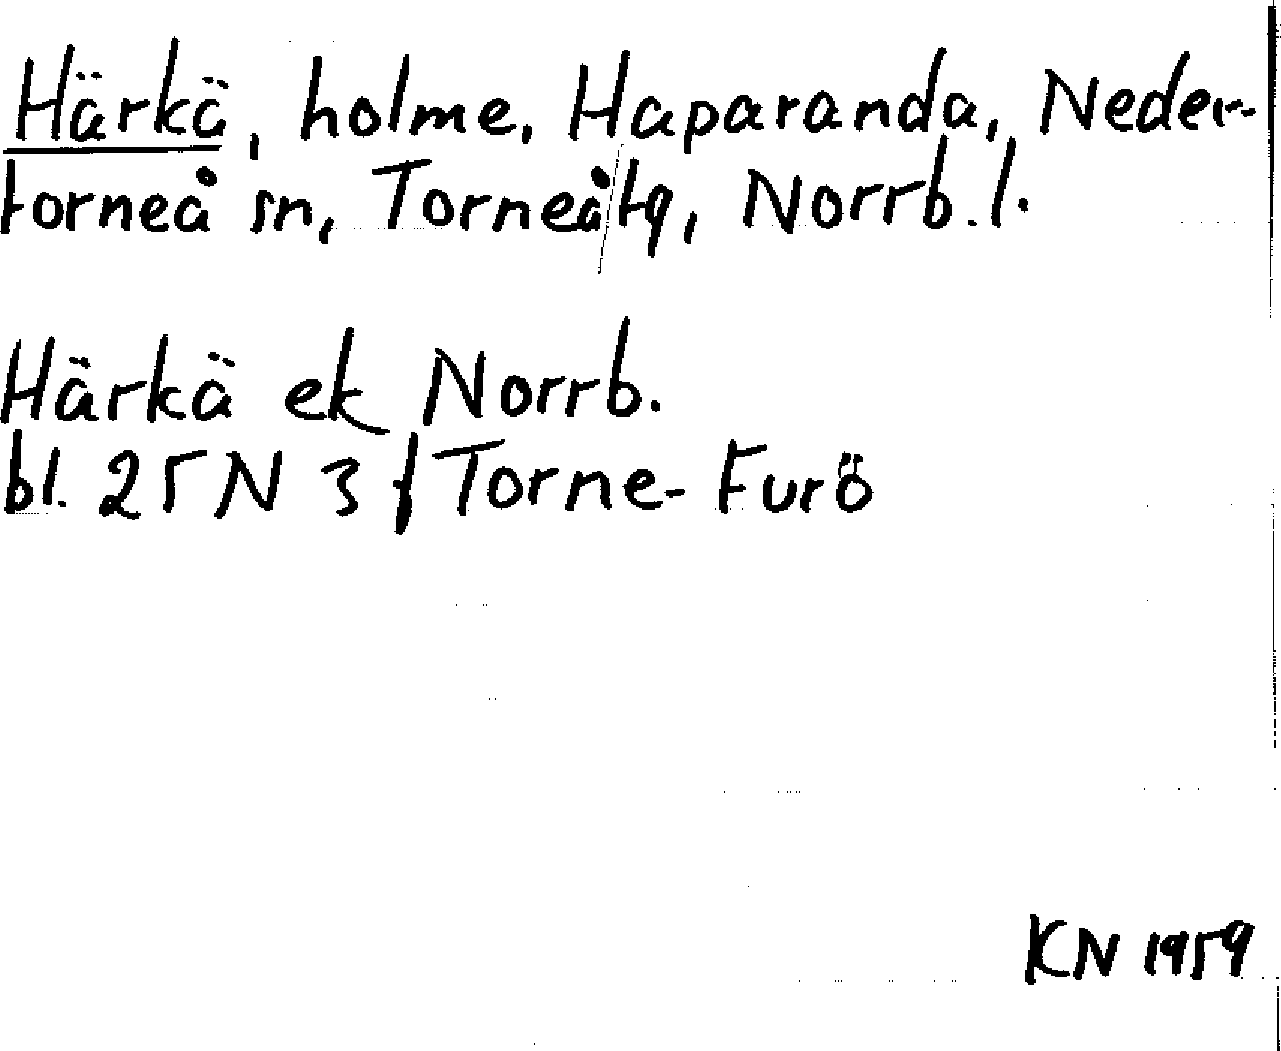 Härkä, holme, Haparanda, Neder-
torneå sn, Torneå tg, Norrb. l.
Härkä ek Norrb.
bl. 25 N 3 f Torne-Furö
KN 1959